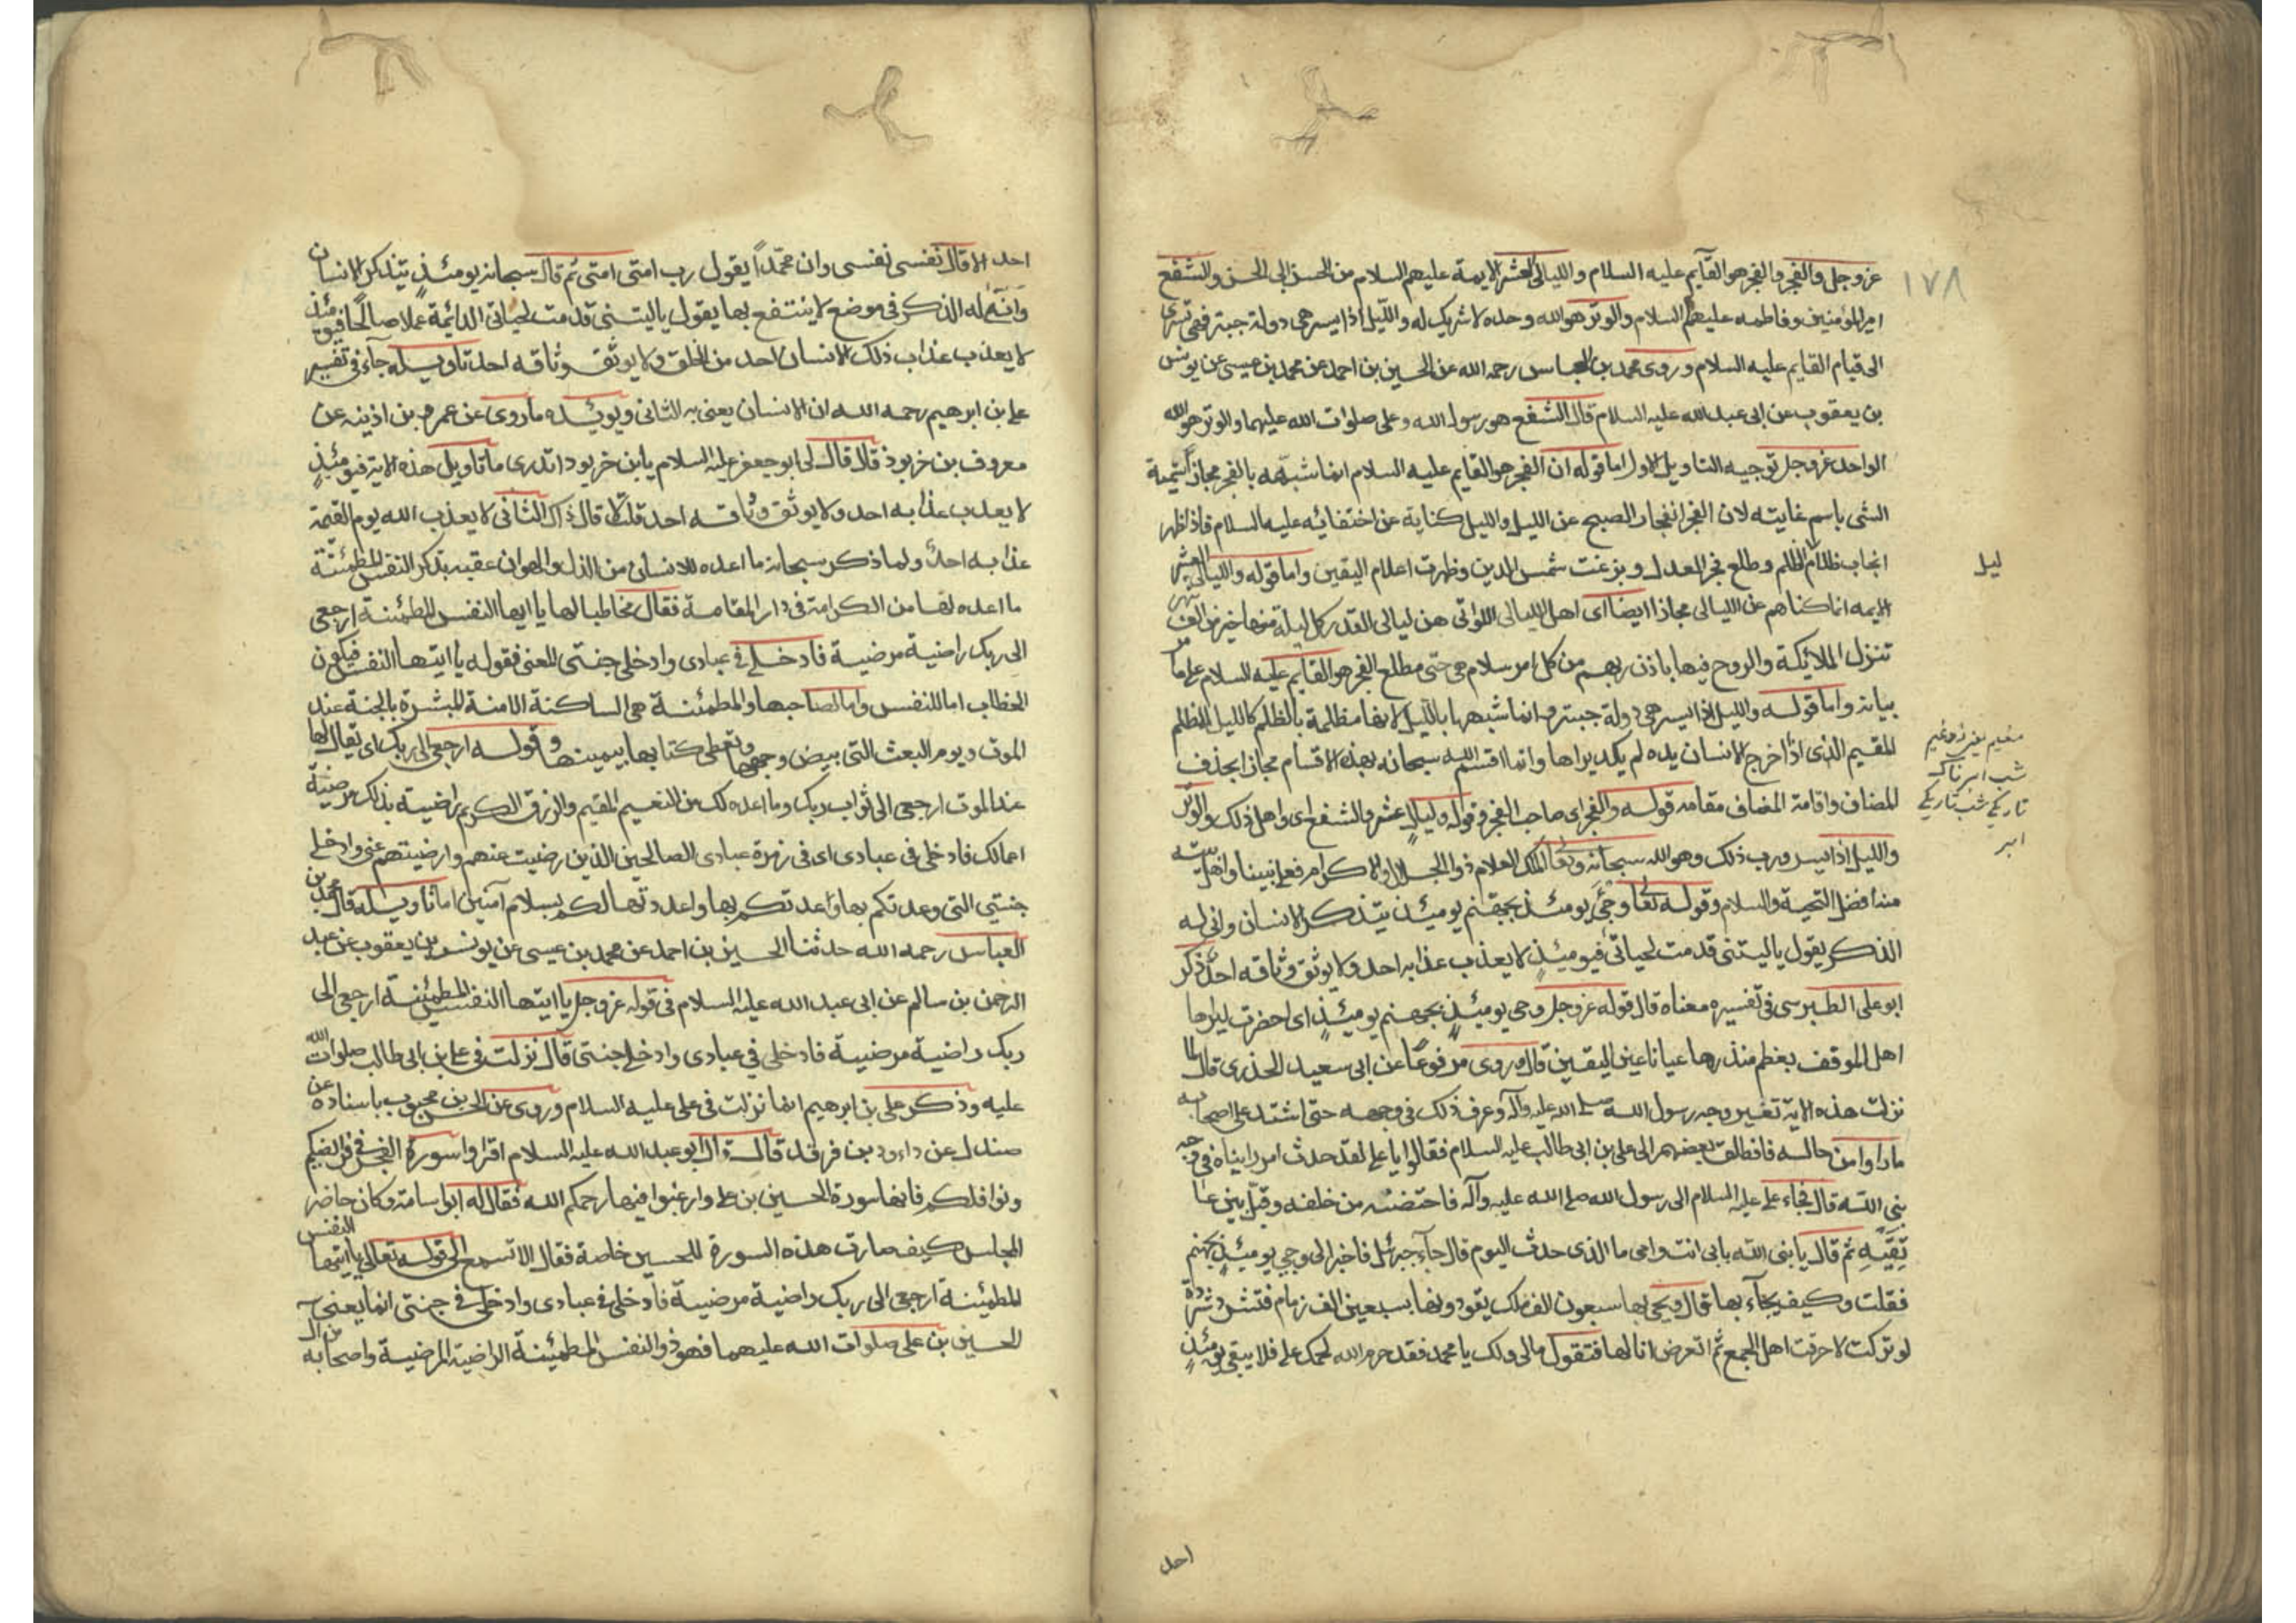 ١٧٨
عز وجل والفجر والفجر هو القايم عليه السلام والليالى العشر الايمة عليهم السلام من الحسن الى الحسن والشفع
امير المؤمنين وفاطمه عليهم السلام والوتر هو الله وحده لا شريك له والليل اذا يسر هى دولة حبتر فهى تسرى
الى قيام القايم عليه السلام وروى محمد بن العباس رحمه الله عن الحسين بن احمد عن محمد بن عيسى عن يونس
بن يعقوب عن ابى عبد الله عليه السلام قال الشفع هو رسول الله وعلى صلوات الله عليهما والوتر هو الله
الواحد عز وجل توجيه التاويل الاول اما قوله ان الفجر هو القايم عليه السلام انما شبّهه بالفجر مجازا تسمية
الشى باسم غايته لان الفجر انفجار الصبح عن الليل والليل كناية عن اختفائه عليه السلام فاذا ظهر
انجاب ظلام الظلم وطلع فجر العدل وبزغت شمس الدين وظهرت اعلام اليقين واما قوله والليالى العشر
ليل
الايمه انما كناهم عن الليالى مجازا ايضا اى اهل الليالى اللواتى هن ليالى القدر كل ليلة منها خير من الف شهر
تنزل الملائكة والروح فيها باذن ربهم من كل امر سلام هى حتى مطلع الفجر هو القايم عليه السلام على ما مر
بيانه واما قوله والليل اذا يسر هى دولة حبتر وانما شبهها بالليل لانها مظلمة بالظلم كالليل المظلم
المقيم الذى اذا اخرج الانسان يده لم يكد يراها وانما اقسم الله سبحانه بهذه الاقسام مجازا بحذف
المضاف واقامة المضاف مقامه قوله والفجر اى صاحب الفجر وقوله وليال عشر والشفع اى واهل ذلك والوتر
شب ابرناك
تاريكى شب تاريكى
ابر
والليل اذا يسر ورب ذلك وهو الله سبحانه وتعالى الملك العلام ذو الجلال والاكرام فعلى نبينا واهل بيته
منه افضل التحية والسلام وقوله تعالى وجىء يومئذ بجهنم يومئذ يتذكر الانسان وانى له
الذكرى يقول ياليتنى قدمت لحياتى فيومئذ لا يعذب عذابه احد ولا يوثق وثاقه احد ذكر
ابو على الطبرسى فى تفسيره معناه قال قوله عز وجل وجى يومئذ بجهنم يومئذ اى احضرت ليراها
اهل الموقف بعظم منذرها عيانا عين اليقين قال وروى مرفوعا عن ابى سعيد الخدرى قال لما
نزلت هذه الاية تغير وجه رسول الله صلى الله عليه وآله وعرف ذلك فى وجهه حتى اشتد على اصحابه
ما راوا من حاله فانطلق بعضهم الى على بن ابى طالب عليه السلام فقالوا يا على لقد حدث امر رايناه فى وجه
نبى الله قال فجاء على عليه السلام الى رسول الله صلى الله عليه وآله فاحتضنه من خلفه وقبل بين عا
تقيه ثم قال يا نبى الله بابى انت وامى ما الذى حدث اليوم قال جآء جبرئل فاخبر الى وجيء يومئذ بجهنم
فقلت وكيف يجآء بها قال ويجى بها سبعون الف ملك يقودونها بسبعين الف زمام فتشرد شردة
لو تركت لاحرقت اهل الجمع ثم اتعرض انا لها فتقول مالى ولك يا محمد فقد حرم الله لحمك على فلا يبقى يومئذ
احد
احد الا قال نفسى نفسى وان محمّدا يقول رب امتى امتى ثم قال سبحانه يومئذ يتذكر الانسان
وانى له الذكرى فى موضع لا ينتفع بها يقول ياليتنى قدمت لحياتى الدائمة عملا صالحا فيومئذ
لا يعذب عذاب ذلك الانسان احد من الخلق ولا يوثق وثاقه احد تاويله جآء فى تفسير
على بن ابرهيم رحمه الله ان الانسان يعنى به الثانى ويويّده ما روى عن عمر بن اذينه عن
معروف بن خربوذ قال قال لى ابو جعفر عليه السلام يابن خربوذ اتدرى ما تاويل هذه الاية فيومئذ
لا يعذب عذابه احد ولا يوثق وثاقه احد قلت لا قال ذاك الثانى لا يعذب الله يوم القيمة
عذابه احدٌ ولما ذكر سبحانه ما اعده للانسان من الذل والهوان عقبه بذكر النفس المطمئنّة
ما اعده لها من الكرامة فى دار المقامة فقال مخاطبا لها يا ايها النفس المطمئنة ارجعى
الى ربك راضية مرضية فادخلى فى عبادى وادخلى جنتى المعنى فقوله يا ايتها النفس فيكون
الخطاب اما للنفس واما لصاحبها والمطمئنة هى الساكنة الامنة المبشرة بالجنة عند
الموت ويوم البعث التى بيض وجهها وتعطى كتابها بيمينها وقوله ارجعى الى ربك اى يقال لها
عند الموت ارجعى الى ثواب ربك وما اعده لك من النعيم المقيم والرزق الكريم راضية بذلك مرضية
اعمالك فادخلى فى عبادى اى فى زمرة عبادى الصالحين الذين رضيت عنهم وارضيتهم عنى وادخلى
جنتى التى وعدتكم بها واعدتكم بها واعددتها لكم بسلام آمنين اما تاويله قال محمد بن
العباس رحمه الله حدثنا الحسين بن احمد عن محمد بن عيسى عن يونس بن يعقوب عن عبد
الرحمن بن سالم عن ابى عبد الله عليه السلام فى قوله عز وجل يا ايتها النفس المطمئنة ارجعى الى
ربك راضية مرضية فادخلى فى عبادى وادخلى جنتى قال نزلت فى على بن ابى طالب صلوات الله
عليه وذكر على بن ابرهيم انها نزلت فى على عليه السلام وروى عن الحسن بن محبوب باسناده عن
صندل عن داود بن فرقد قال قال ابو عبد الله عليه السلام اقراوا سورة الفجر فى فرائضكم
ونوافلكم فانها سورة الحسين بن على وارغبوا فيها رحمكم الله فقال له ابو اسامة وكان حاضر
المجلس كيف صارت هذه السورة للحسين خاصة فقال الا تسمع الى قوله تعالى يا ايتها النفس
المطمئنة ارجعى الى ربك راضية مرضية فادخلى فى عبادى وادخلى فى جنتى انما يعنى
الحسين بن على صلوات الله عليهما فهو ذو النفس المطمئنة الراضية المرضية واصحابه من آل